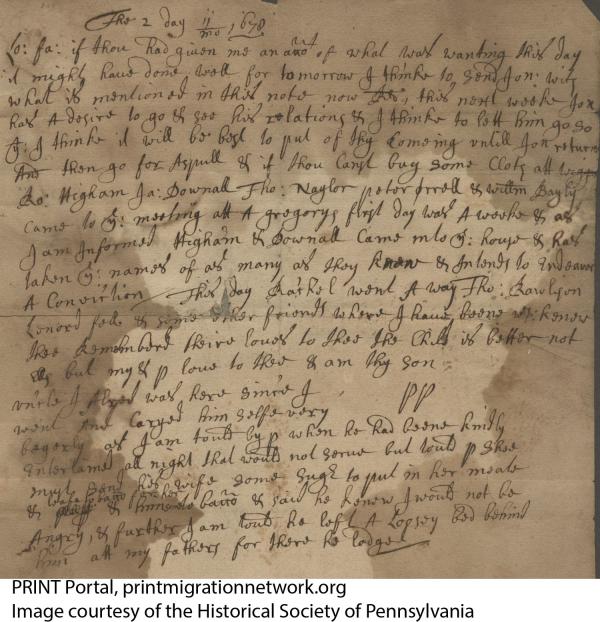 The 2 day 11/mo 1678
Lo: fa: if thou had given me an acot of what was wanting this day
it might have done well for tomorrow I thinke to send Jon: with
what is mentioned in this note now this next weeke Jon
has A desire to go & see his relations & I thinke to lett him go so
yt I thinke it will be best to put of thy Comeing untill Jon return
And then go for Aspull & if thou Canst buy some Clots att
Ro: Higham Ja: Downall Tho: Naylor peter & willm Bayly
Came to ye: meeting att A gregorys first day was A weeke & as
I am Informed Higham & Downall Came into ye: house & has
taken ye: names of as many as they know & Intends to Endeavor
A Conviction This day Rachel went A way Tho: Rawlyson
Lenord fell & some other friends where I have beene wt: knew
thee Remembers theire loves to thee the Child is better not
but my & p love to thee & am thy son
pp
vncle J Alred was here since I
went And Caryed him selfe very
bagerly as I am tould by p when he had beene kindly
Entertained all night that would not serue but tould p Shee
must send his wife some suge to put in her meate
& & said he knew I would not be
Angry, & further I am tould he left A Lopsey bed behind
him att my fathers for there he lodged
PRINT Portal, printmigrationnetwork.org
Image courtesy of the Historical Society of Pennsylvania